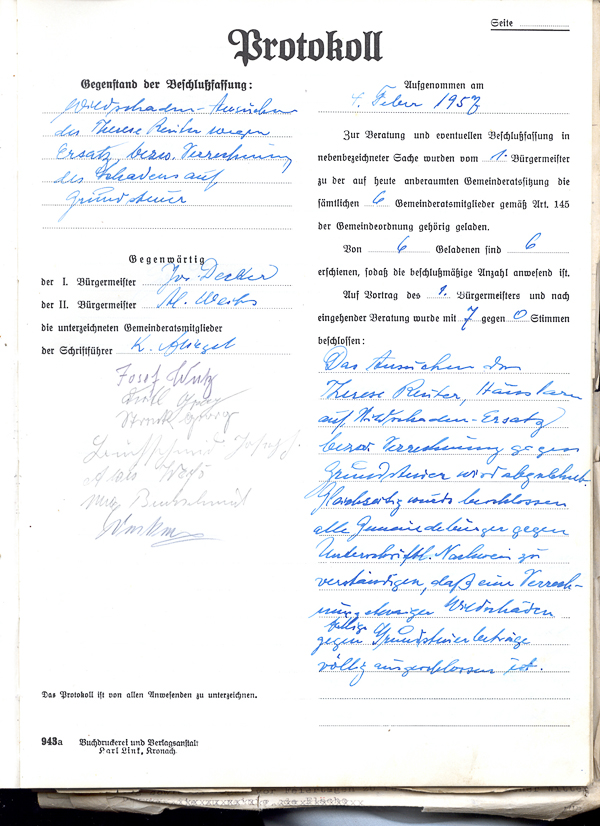 Seite
Protokoll
Gegenstand der Beschlußfassung:
Wildschaden-Ansuchen
der Therese Reuter wegen
Ersatz, bezw. Verrechnung
des Schadens auf
Grundsteuer
Gegenwärtig
der I. Bürgermeister Jos. Decker
der II. Bürgermeister Al. Weihs
die unterzeichneten Gemeinderatsmitglieder
der Schriftführer K.
Josef Wutz
Georg
Georg
Josef
Alois
Das Protokoll ist von allen Anwesenden zu unterzeichnen.
943a Buchdruckerei und Verlagsanstalt
Karl Link, Kronach.
Aufgenommen am
4. Feber 1957
Zur Beratung und eventuellen Beschlußfassung in
nebenbezeichneter Sache wurden vom 1. Bürgermeister
zu der auf heute anberaumten Gemeinderatssitzung die
sämtlichen 6 Gemeinderatsmitglieder gemäß Art. 145
der Gemeindeordnung gehörig geladen.
Von 6 Geladenen sind 6
erschienen, sodaß die beschlußmäßige Anzahl anwesend ist.
Auf Vortrag des 1. Bürgermeisters und nach
eingehender Beratung wurde mit 7 gegen 0 Stimmen
beschlossen:
Das Ansuchen der
Therese Reuter,
auf Wildschaden-Ersatz
bezw. Verrechnung gegen
Grundsteuer wird abgelehnt.
Gleichzeitig wurde beschlossen
alle Gemeindebürger gegen
Unterschriftl. Nachweis zu
verständigen, daß eine Verrech-
nung etwaiger Wildschäden
gegen fällige Grundsteuerbeträge
völlig ausgeschlossen ist.